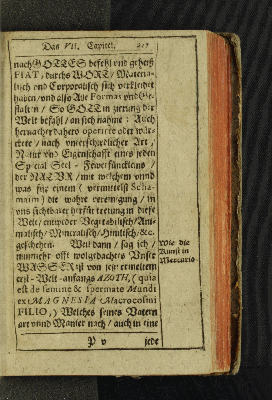 Das VII. Capitel. 217
nach GOTTES befehl vnd geheiß
FIAT, durchs WORT / Materia-
lisch vnd Corporalisch sich verkleidet
haben / vnd also Alle Formas vnd Ge-
stalten / So GOTT in zierung der
Welt befahl / an sich nahme: Auch
hernacher dahero operirte oder wür-
ckete / nach vnterschiedlicher Art /
Natur vnd Eigenschafft eines jeden
Special Seel-Fewrfünckleins /
der NATVR / mit welchem vnnd
was für einem (vermittelst Scha-
maim) die wahre vereinigung / in
vns sichtbarer herfür tretung in diese
Welt / entweder Vegetabilisch / Ani-
malisch / Mineralisch / Himlisch / &c.
geschehen. Weil dann / sag ich /
nunmehr offt wolgedachtes Vnser
WASSER ist von jetzt ermeltem
erst-Welt-anfangs AZOTH, (quia
est de semine & spermate Mundi
ex MAGNESIA Macrocosmi
FILIO,) Welches seines Vatern
art vnnd Manier nach / auch in eine
Wie die
Kunst in
Mercurio
P v jede